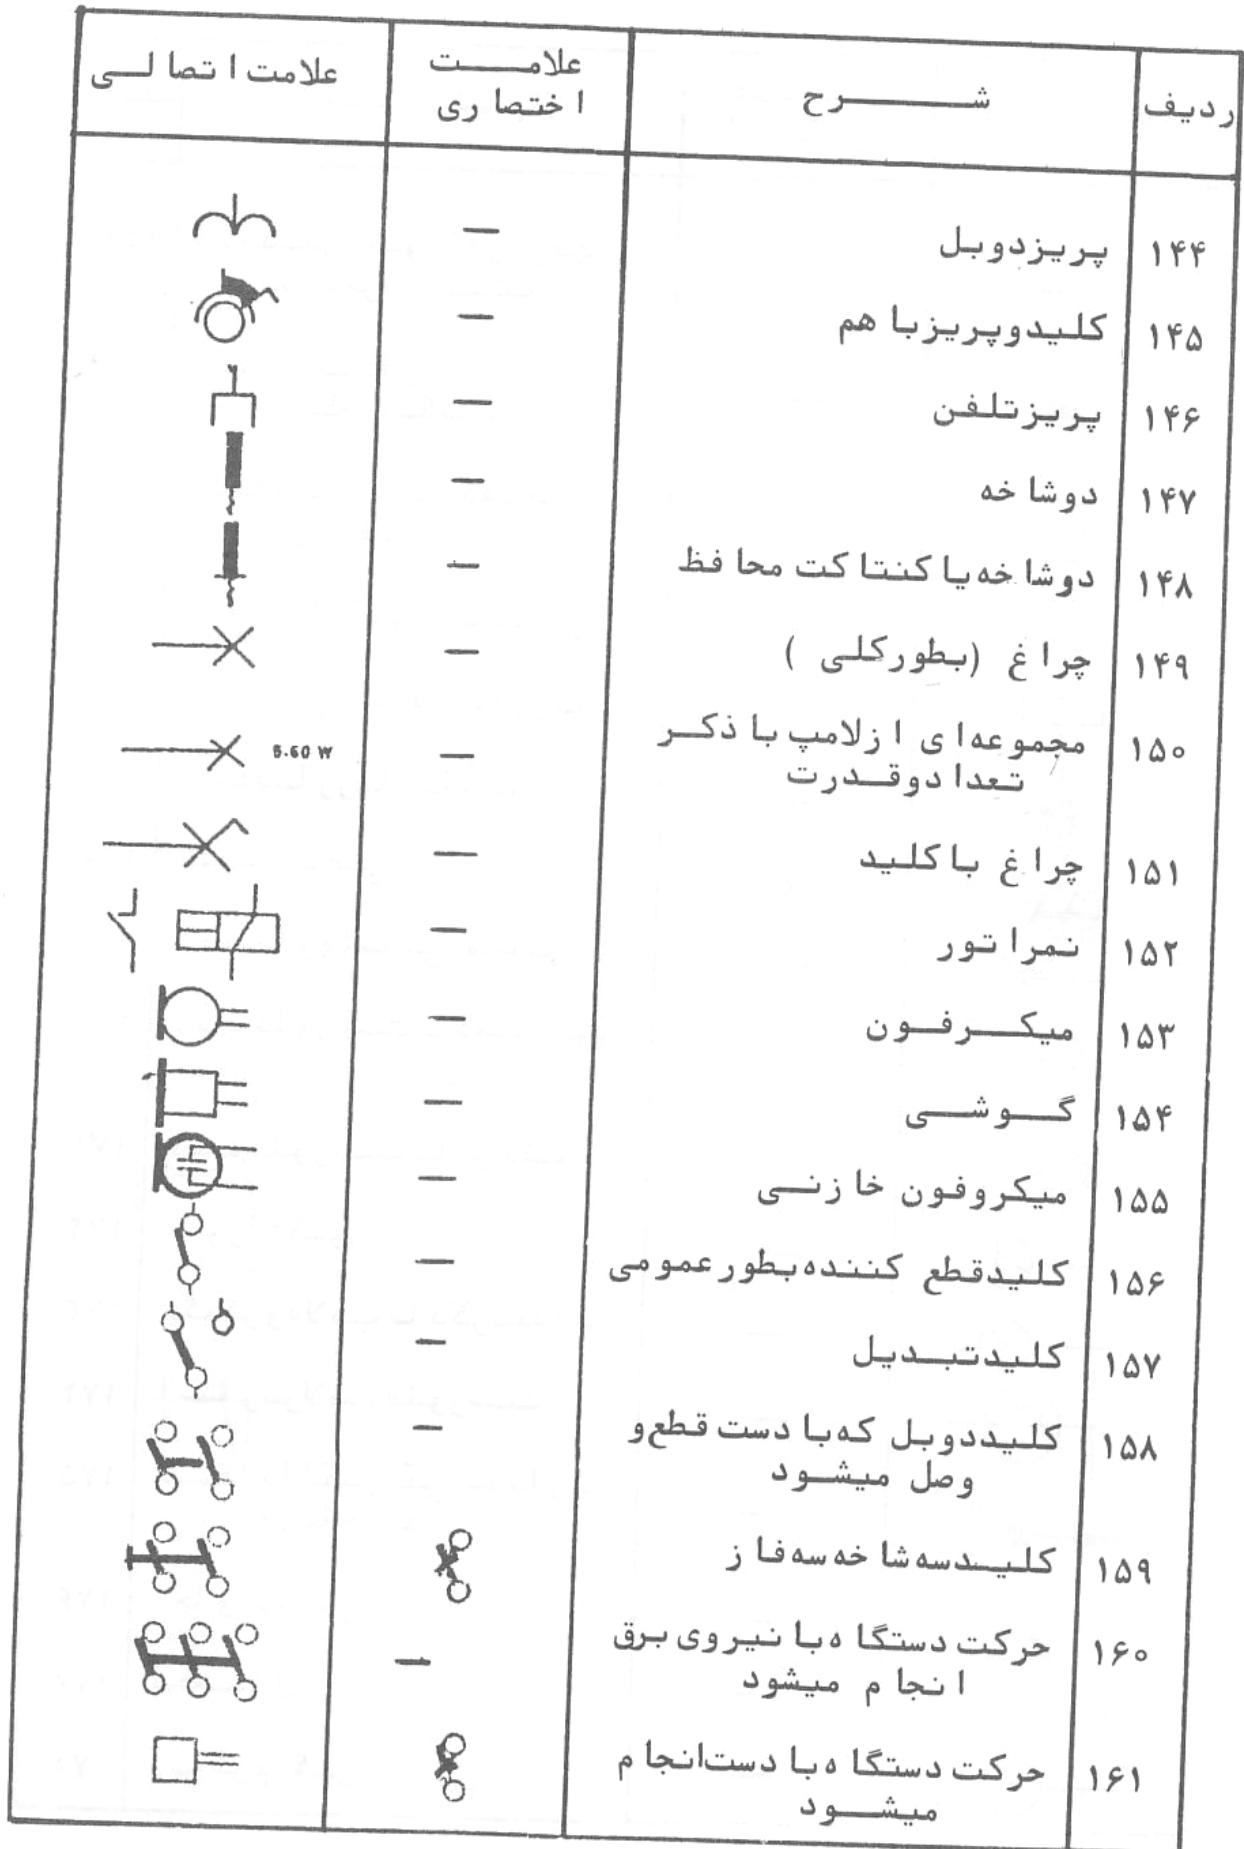 ردیف
شرح
علامت
اختصاری
علامت اتصالی
۱۴۴ پریز دوبل —
۱۴۵ کلید و پریز با هم —
۱۴۶ پریز تلفن —
۱۴۷ دوشاخه —
۱۴۸ دوشاخه یا کنتاکت محافظ —
۱۴۹ چراغ (بطور کلی) —
۱۵۰ مجموعه ای از لامپ با ذکر — 5.60 W
تعداد و قدرت
۱۵۱ چراغ با کلید —
۱۵۲ نمراتور —
۱۵۳ میکرفون —
۱۵۴ گوشی —
۱۵۵ میکروفون خازنی —
۱۵۶ کلید قطع کننده بطور عمومی —
۱۵۷ کلید تبدیل —
۱۵۸ کلید دوبل که با دست قطع و —
وصل میشود
۱۵۹ کلید سه شاخه سه فاز
۱۶۰ حرکت دستگاه با نیروی برق —
انجام میشود
۱۶۱ حرکت دستگاه با دست انجام
میشود